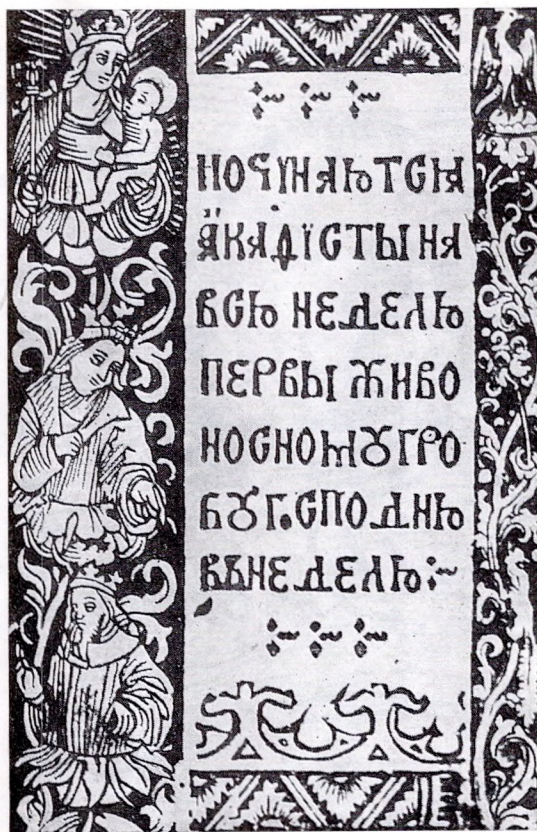 ПОЧИНАЮТСѦ
АКАѲЇСТЫ НА
ВСЮ НЕДЕЛЮ
ПЕРВЫ ЖИВО
НОСНОМꙊ ГРО
БꙊ Г.СПОДНЮ
ВЪ НЕДЕЛЮ:~